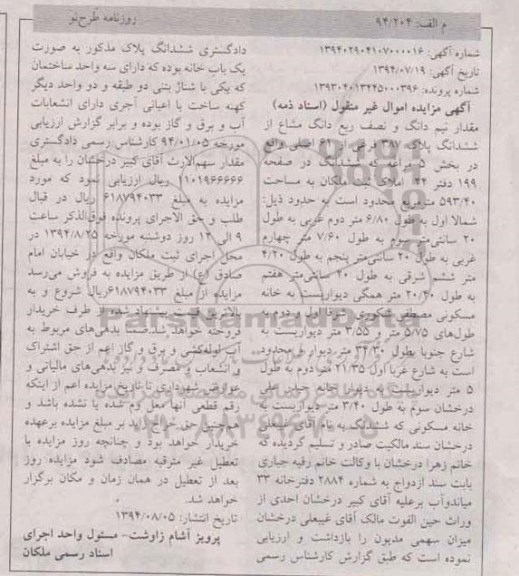 م الف: ۹۴/۲۰۴
روزنامه طرح‌نو
شماره آگهی: ۱۳۹۴۰۲۹۰۴۱۰۷۰۰۰۰۱۶
تاریخ آگهی: ۱۳۹۴/۰۷/۱۹
شماره پرونده: ۱۳۹۳۰۴۰۱۳۲۴۵۰۰۰۳۹۶
آگهی مزایده اموال غیر منقول (اسناد ذمه)
مقدار نیم دانگ و نصف ربع دانگ مشاع از
ششدانگ پلاک ۳۸۷ فرعی از اصلی واقع
در بخش ۵ مراغه که ششدانگ در صفحه
۱۹۹ دفتر ۴۴ املاک ثبت ملکان به مساحت
۵۹۳/۴۰ مترمربع محدود است به حدود ذیل:
شمالا اول به طول ۶/۸۰ متر دوم غربی به طول
۲۰ سانتی‌متر سوم به طول ۷/۶۰ متر چهارم
غربی به طول ۲۰ سانتی‌متر پنجم به طول ۴/۲۰
متر ششم شرقی به طول ۲۰ سانتی‌متر هفتم
به طول ۲۰/۲۰ متر همگی دیواریست به خانه
مسکونی مصطفی شکوری شرقا اول و دوم به
طول‌های ۵/۷۵ متر و ۳/۵۵ متر دیواریست به
شارع جنوبا بطول ۳۴/۳۰ متر دیوار و محدود
است به شارع غربا اول ۲۱/۳۵ متر دوم به طول
۵ متر دیواریست به دیوار خانه حیدر علی
درخشان سوم به طول ۳/۴۰ متر دیواریست به
خانه مسکونی که ششدانگ به نام آقای غیبعلی
درخشان سند مالکیت صادر و تسلیم گردیده که
خانم زهرا درخشان با وکالت خانم رقیه جباری
بابت سند ازدواج به شماره ۲۸۸۴ دفترخانه ۳۳
میاندوآب برعلیه آقای کبیر درخشان احدی از
وراث حین الفوت مالک آقای غیبعلی درخشان
میزان سهمی مدیون را بازداشت و ارزیابی
نموده است که طبق گزارش کارشناس رسمی
دادگستری ششدانگ پلاک مذکور به صورت
یک باب خانه بوده که دارای سه واحد ساختمان
که یکی با شناژ بتنی دو طبقه و دو واحد دیگر
کهنه ساخت با اعیانی آجری دارای انشعابات
آب و برق و گاز بوده و برابر گزارش ارزیابی
مورخه ۹۴/۰۱/۰۵ کارشناس رسمی دادگستری
مقدار سهم‌الارث آقای کبیر درخشان را به مبلغ
۱۱۰۱۹۶۶۶۶۶ ریال ارزیابی نمود که مورد
مزایده به مبلغ ۶۱۸۷۹۴۰۳۳ ریال در قبال
طلب و حق الاجرای پرونده فوق‌الذکر ساعت
۹ الی ۱۲ روز دوشنبه مورخه ۱۳۹۴/۸/۲۵ در
محل اجرای ثبت ملکان واقع در خیابان امام
صادق (ع) از طریق مزایده به فروش می‌رسد
مزایده از مبلغ ۶۱۸۷۹۴۰۳۳ریال شروع و به
بالاترین قیمت پیشنهاد شده از طرف خریدار
فروخته خواهد شد ضمنا بدهی‌های مربوط به
آب لوله‌کشی و برق و گاز اعم از حق اشتراک
و انشعاب و مصرف و نیز بدهی‌های مالیاتی و
عوارض شهرداری تا تاریخ مزایده اعم از اینکه
رقم قطعی آنها معلوم شده یا نشده باشد و
همچنین حق حراج زاید بر مبلغ مزایده برعهده
خریدار خواهد بود و چنانچه روز مزایده با
تعطیل غیر مترقبه مصادف شود مزایده روز
بعد از تعطیل در همان زمان و مکان برگزار
خواهد شد.
تاریخ انتشار: ۱۳۹۴/۰۸/۰۵
پرویز آشام زاوشت- مسئول واحد اجرای
اسناد رسمی ملکان